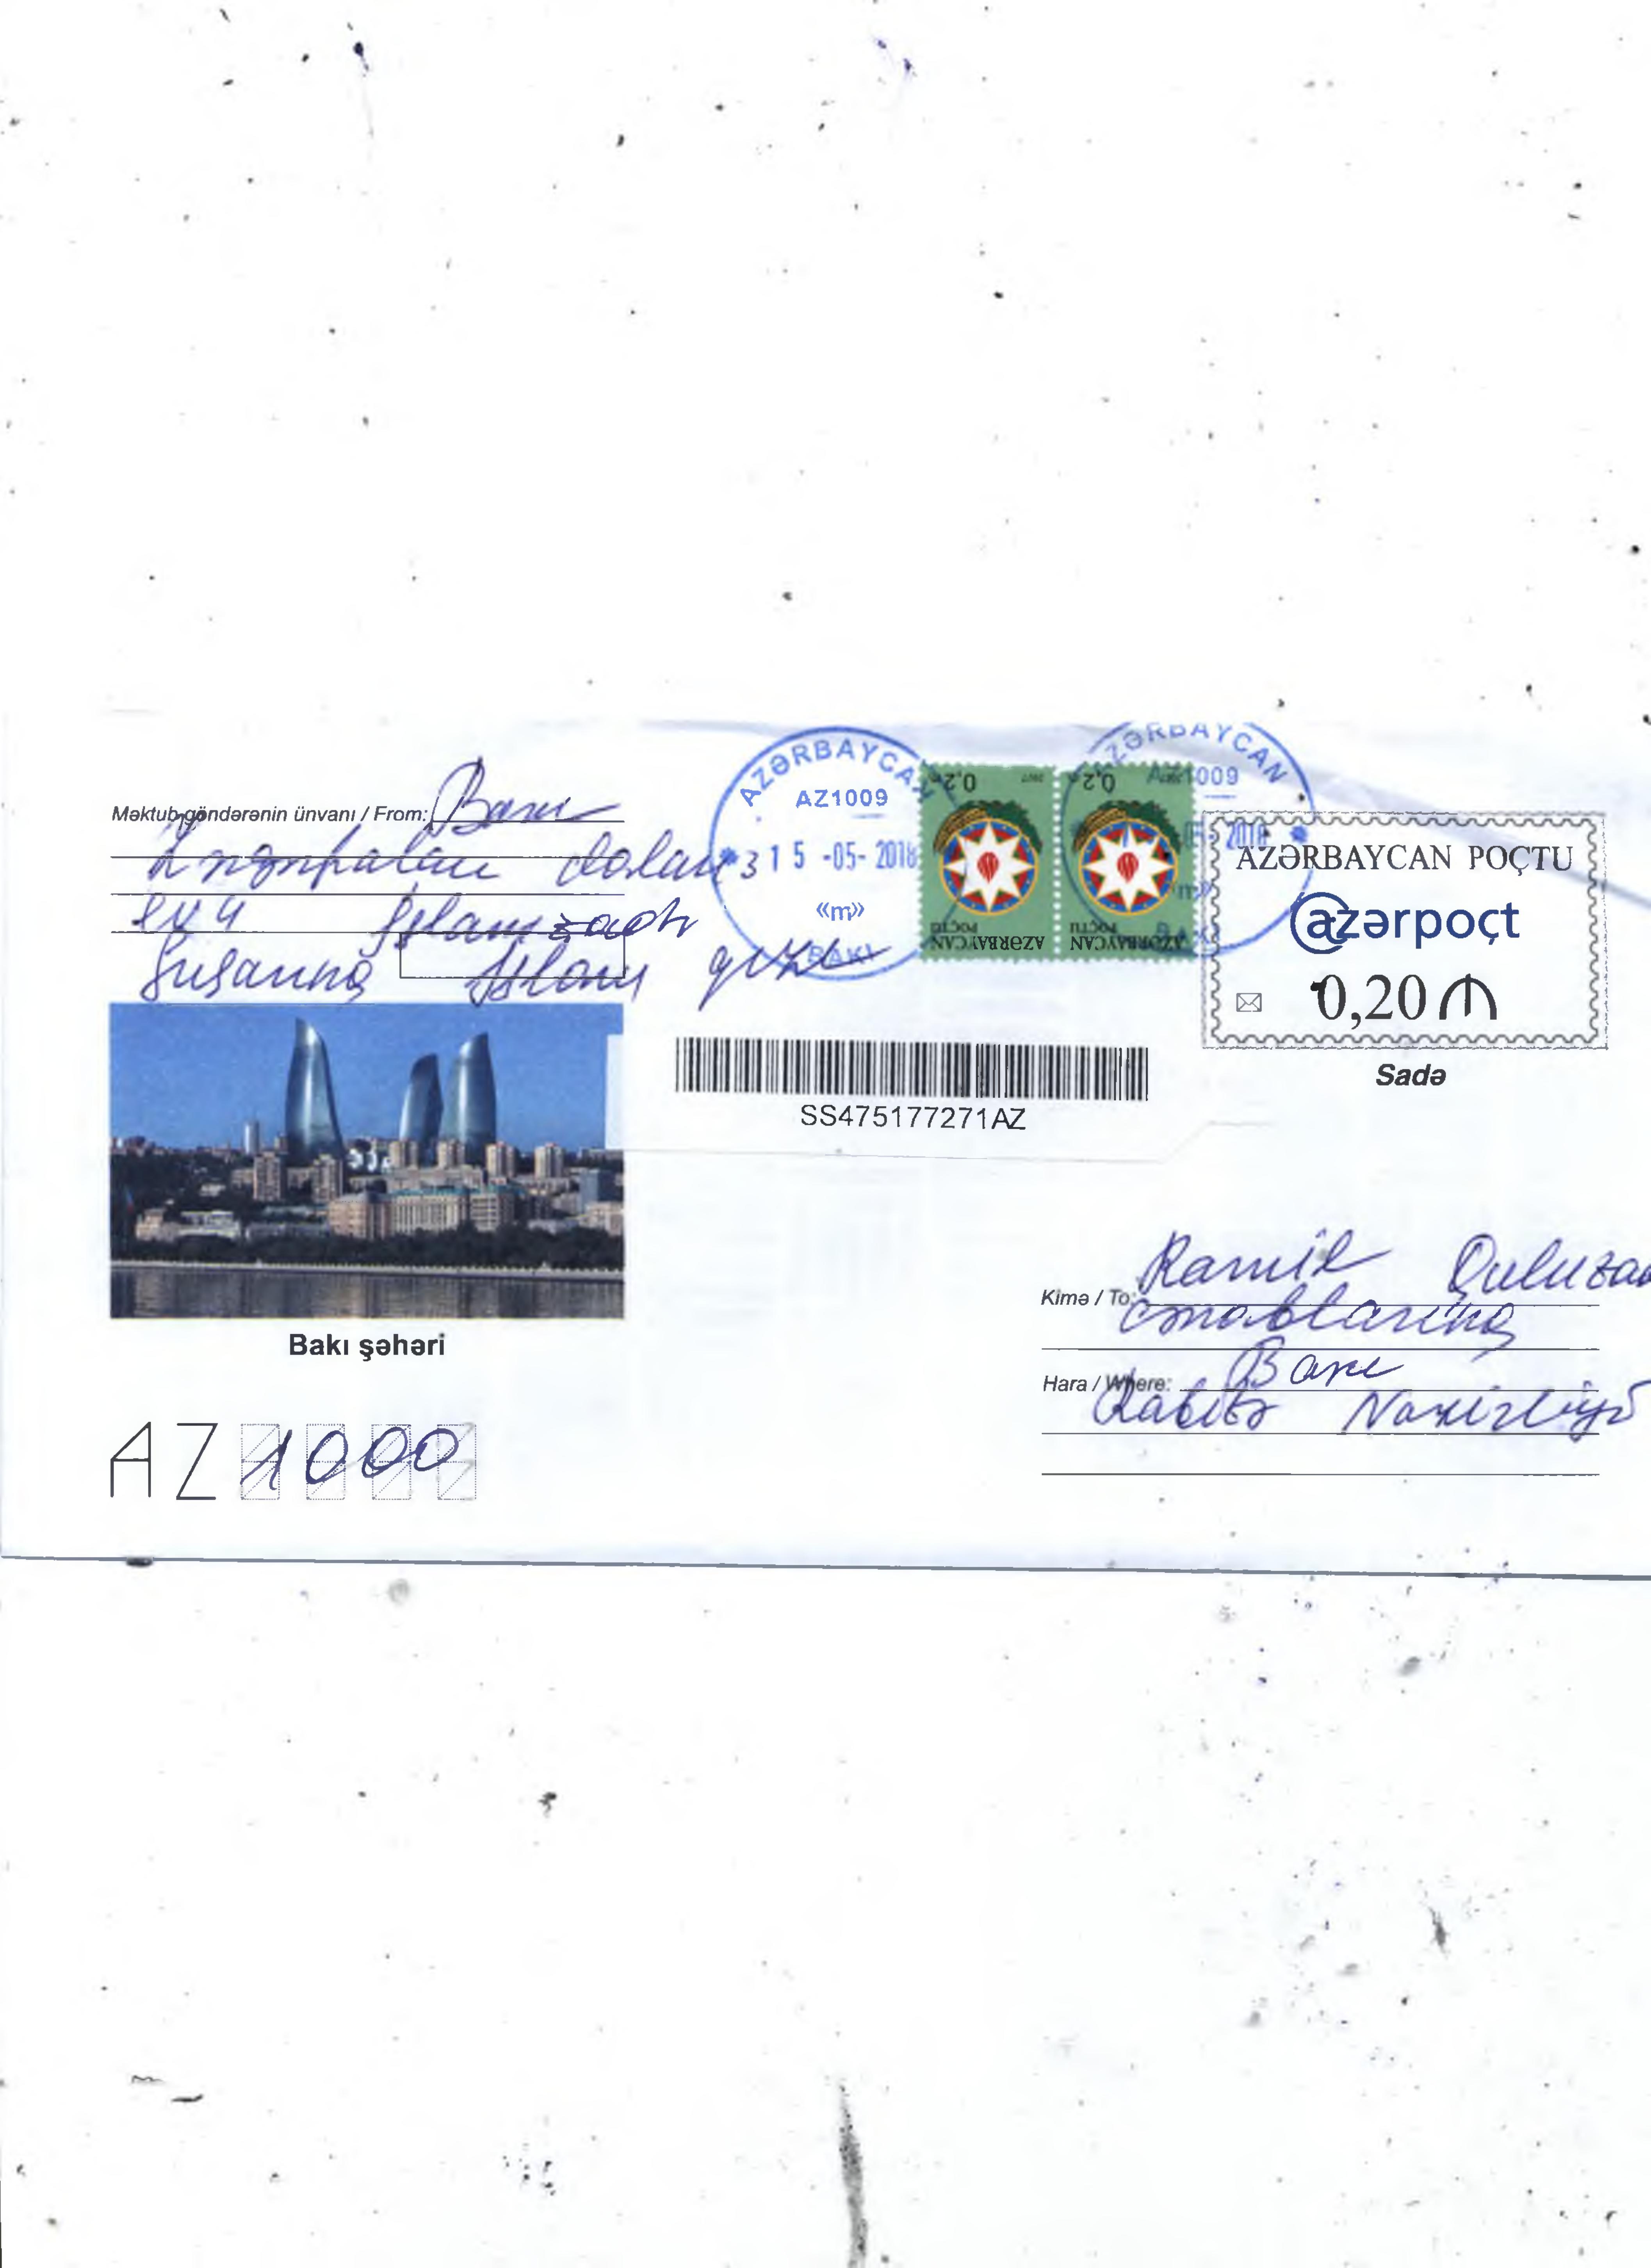 Məktub göndərənin ünvanı / From: Bakı
dalan 3
ev 4 İslamzadə
Susanna İslam qızı
AZƏRBAYCAN
AZ1009
15 -05- 2018
«m»
BAKI
0,2
AZƏRBAYCAN
POÇTU
0,2
AZƏRBAYCAN
POÇTU
AZƏRBAYCAN
AZ1009
05- 2018
«m»
BAKI
AZƏRBAYCAN POÇTU
azərpoçt
0,20 ₼
Sadə
SS475177271AZ
Bakı şəhəri
Kimə / To: Ramil Quluzadə
cənablarına
Hara / Where: Bakı
Rabitə Nazirliyi
AZ 1000